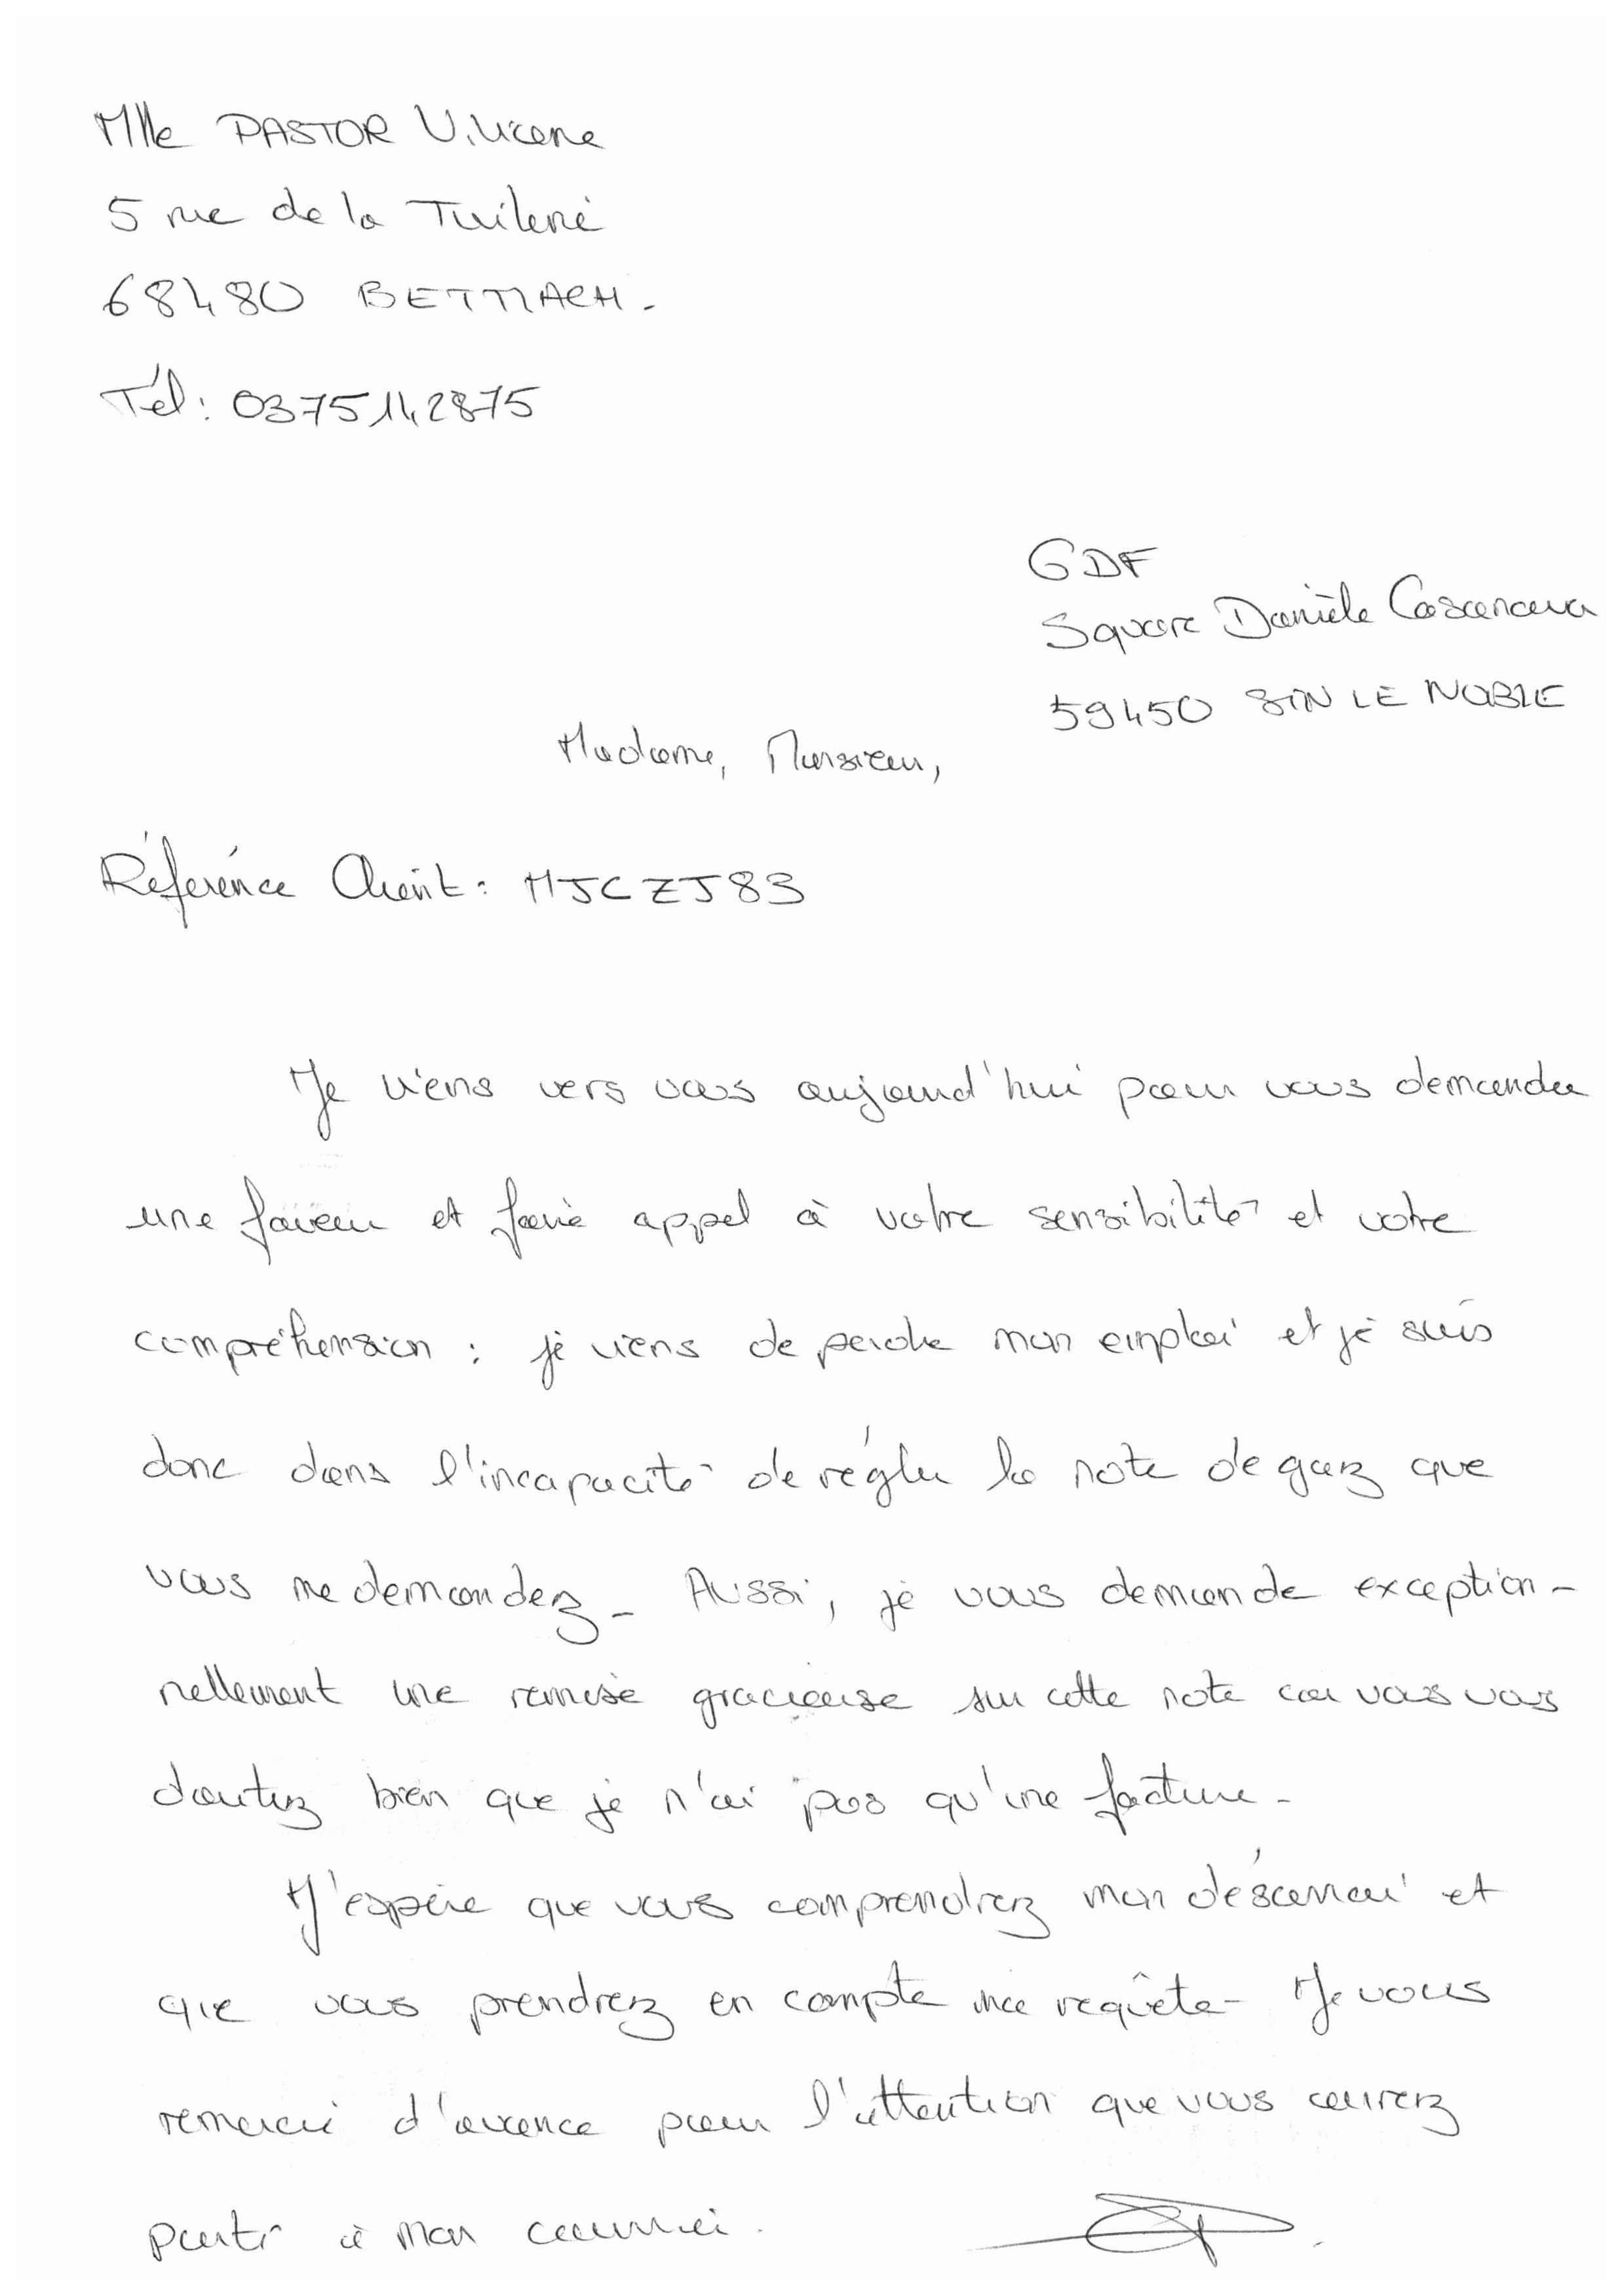 Mlle PASTOR Viviane
5 rue de la Tuilerie
68480 BETTLACH.
Tél: 0375142875
GDF
Square Danièle Casanova
59450 SIN LE NOBLE
Madame, Monsieur,
Référence Client: MJCZJ83
Je viens vers vous aujourd'hui pour vous demander
une faveur et faire appel à votre sensibilité et votre
compréhension : je viens de perdre mon emploi et je suis
donc dans l'incapacité de régler la note de gaz que
vous me demandez. Aussi, je vous demande exception-
nellement une remise gracieuse sur cette note car vous vous
doutez bien que je n'ai pas qu'une facture.
J'espère que vous comprendrez mon désarroi et
que vous prendrez en compte ma requête. Je vous
remercie d'avance pour l'attention que vous aurez
porté à mon courrier.